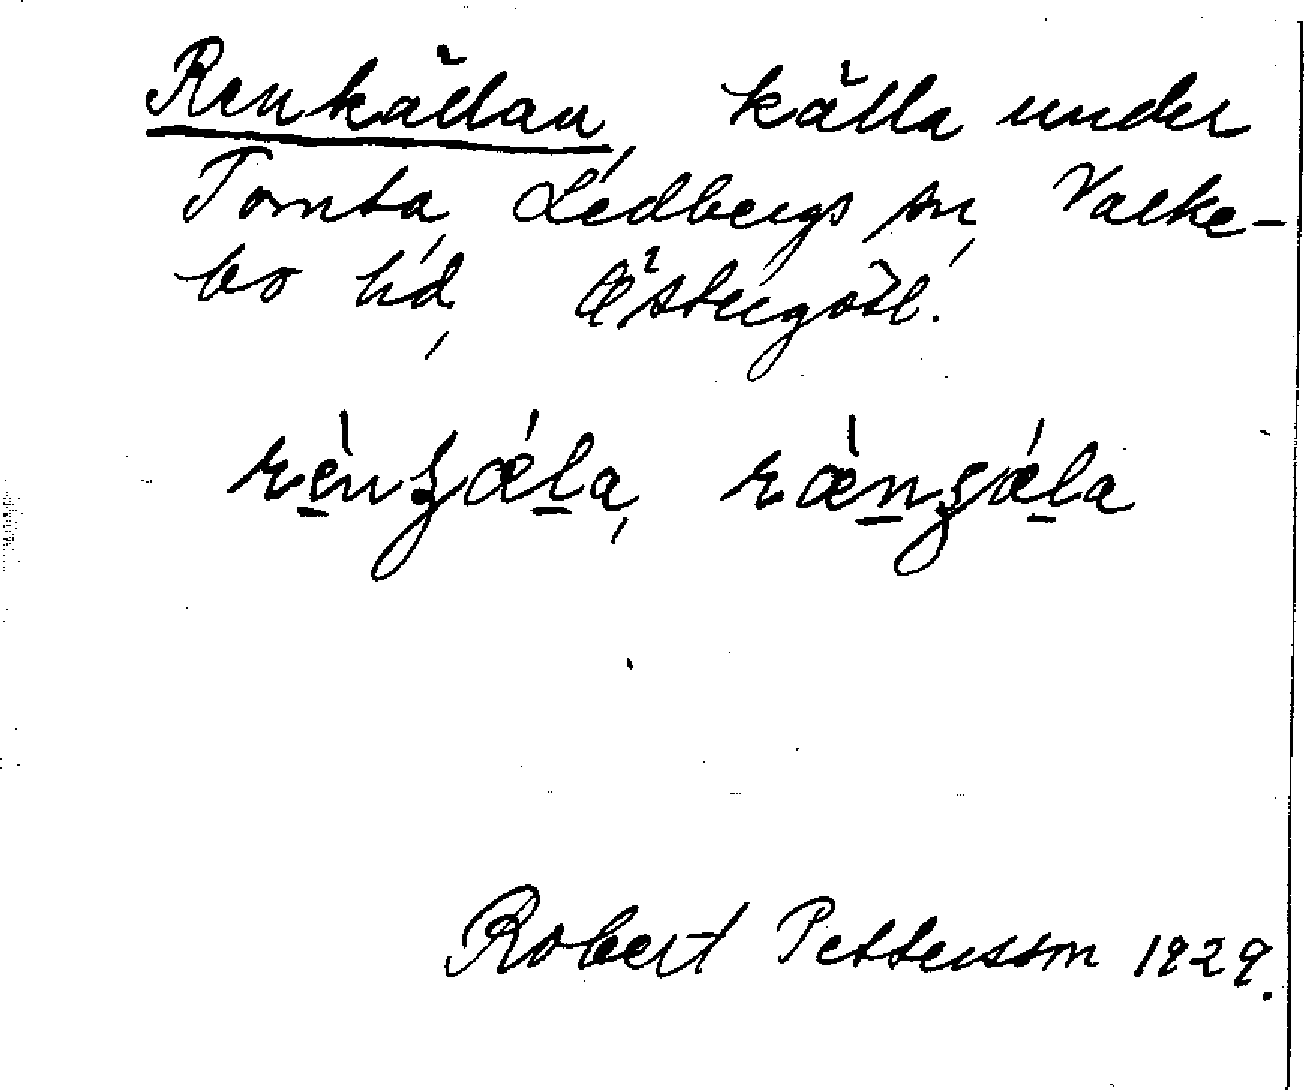 Renkällan, källa under
Tomta, Ledbergs sn, Valke-
bo hd, Östergötl.
rènʒǽla, ræ̀nʒǽla
Robert Pettersson 1929.